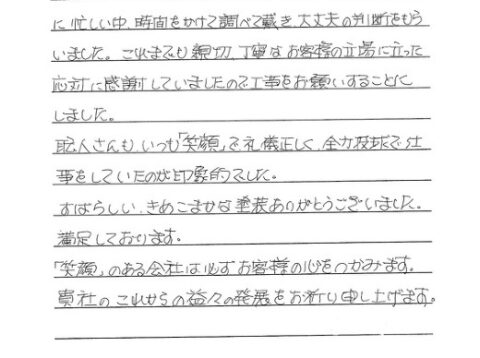 に忙しい中、時間をかけて調べて戴き、大丈夫の判断をもら
いました。これまでも親切、丁寧なお客様の立場に立った
応対に感謝していましたので工事をお願いすることに
しました。
職人さんも いつも「笑顔」で礼儀正しく、全力投球で仕
事をしていたのが印象的でした。
すばらしい、きめこまかな塗装ありがとうございました。
満足しております。
「笑顔」のある会社は必ずお客様の心をつかみます。
貴社の これからの益々の発展をお祈り申し上げます。